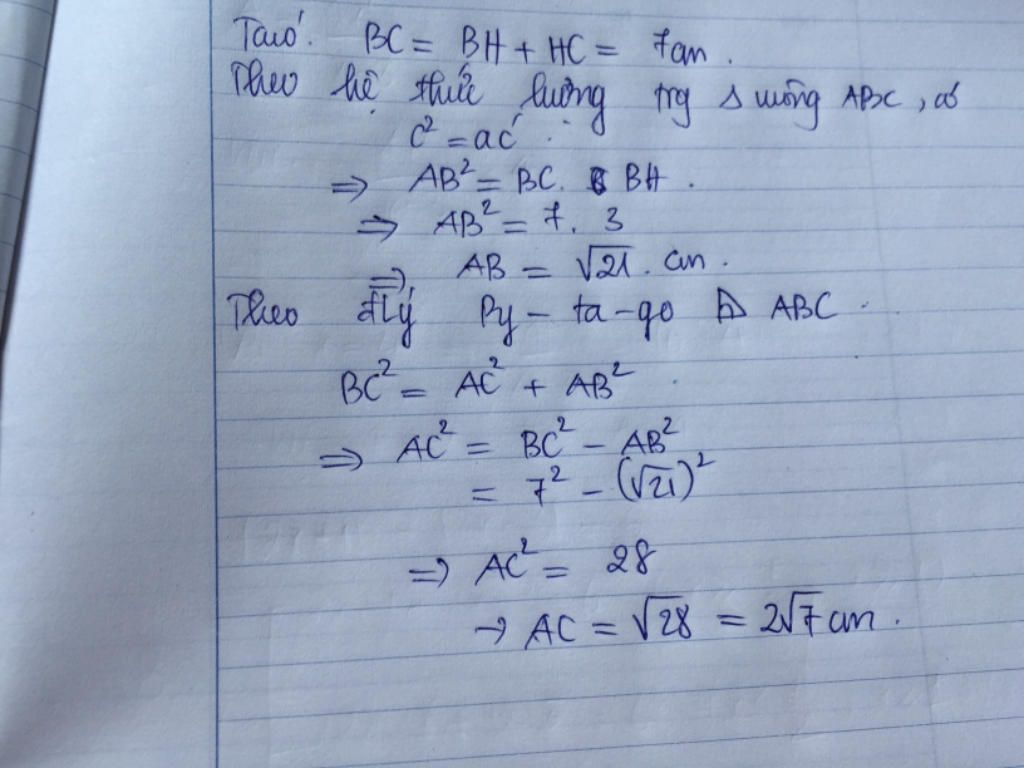 Ta có: BC = BH + HC = 7cm.
Theo hệ thức lượng trg Δ vuông ABC, có
c² = ac'.
⇒ AB² = BC. BH.
⇒ AB² = 7. 3
⇒ AB = √21. cm.
Theo đlý Py-ta-go Δ ABC.
BC² = AC² + AB².
⇒ AC² = BC² - AB²
= 7² - (√21)²
⇒ AC² = 28
→ AC = √28 = 2√7 cm.